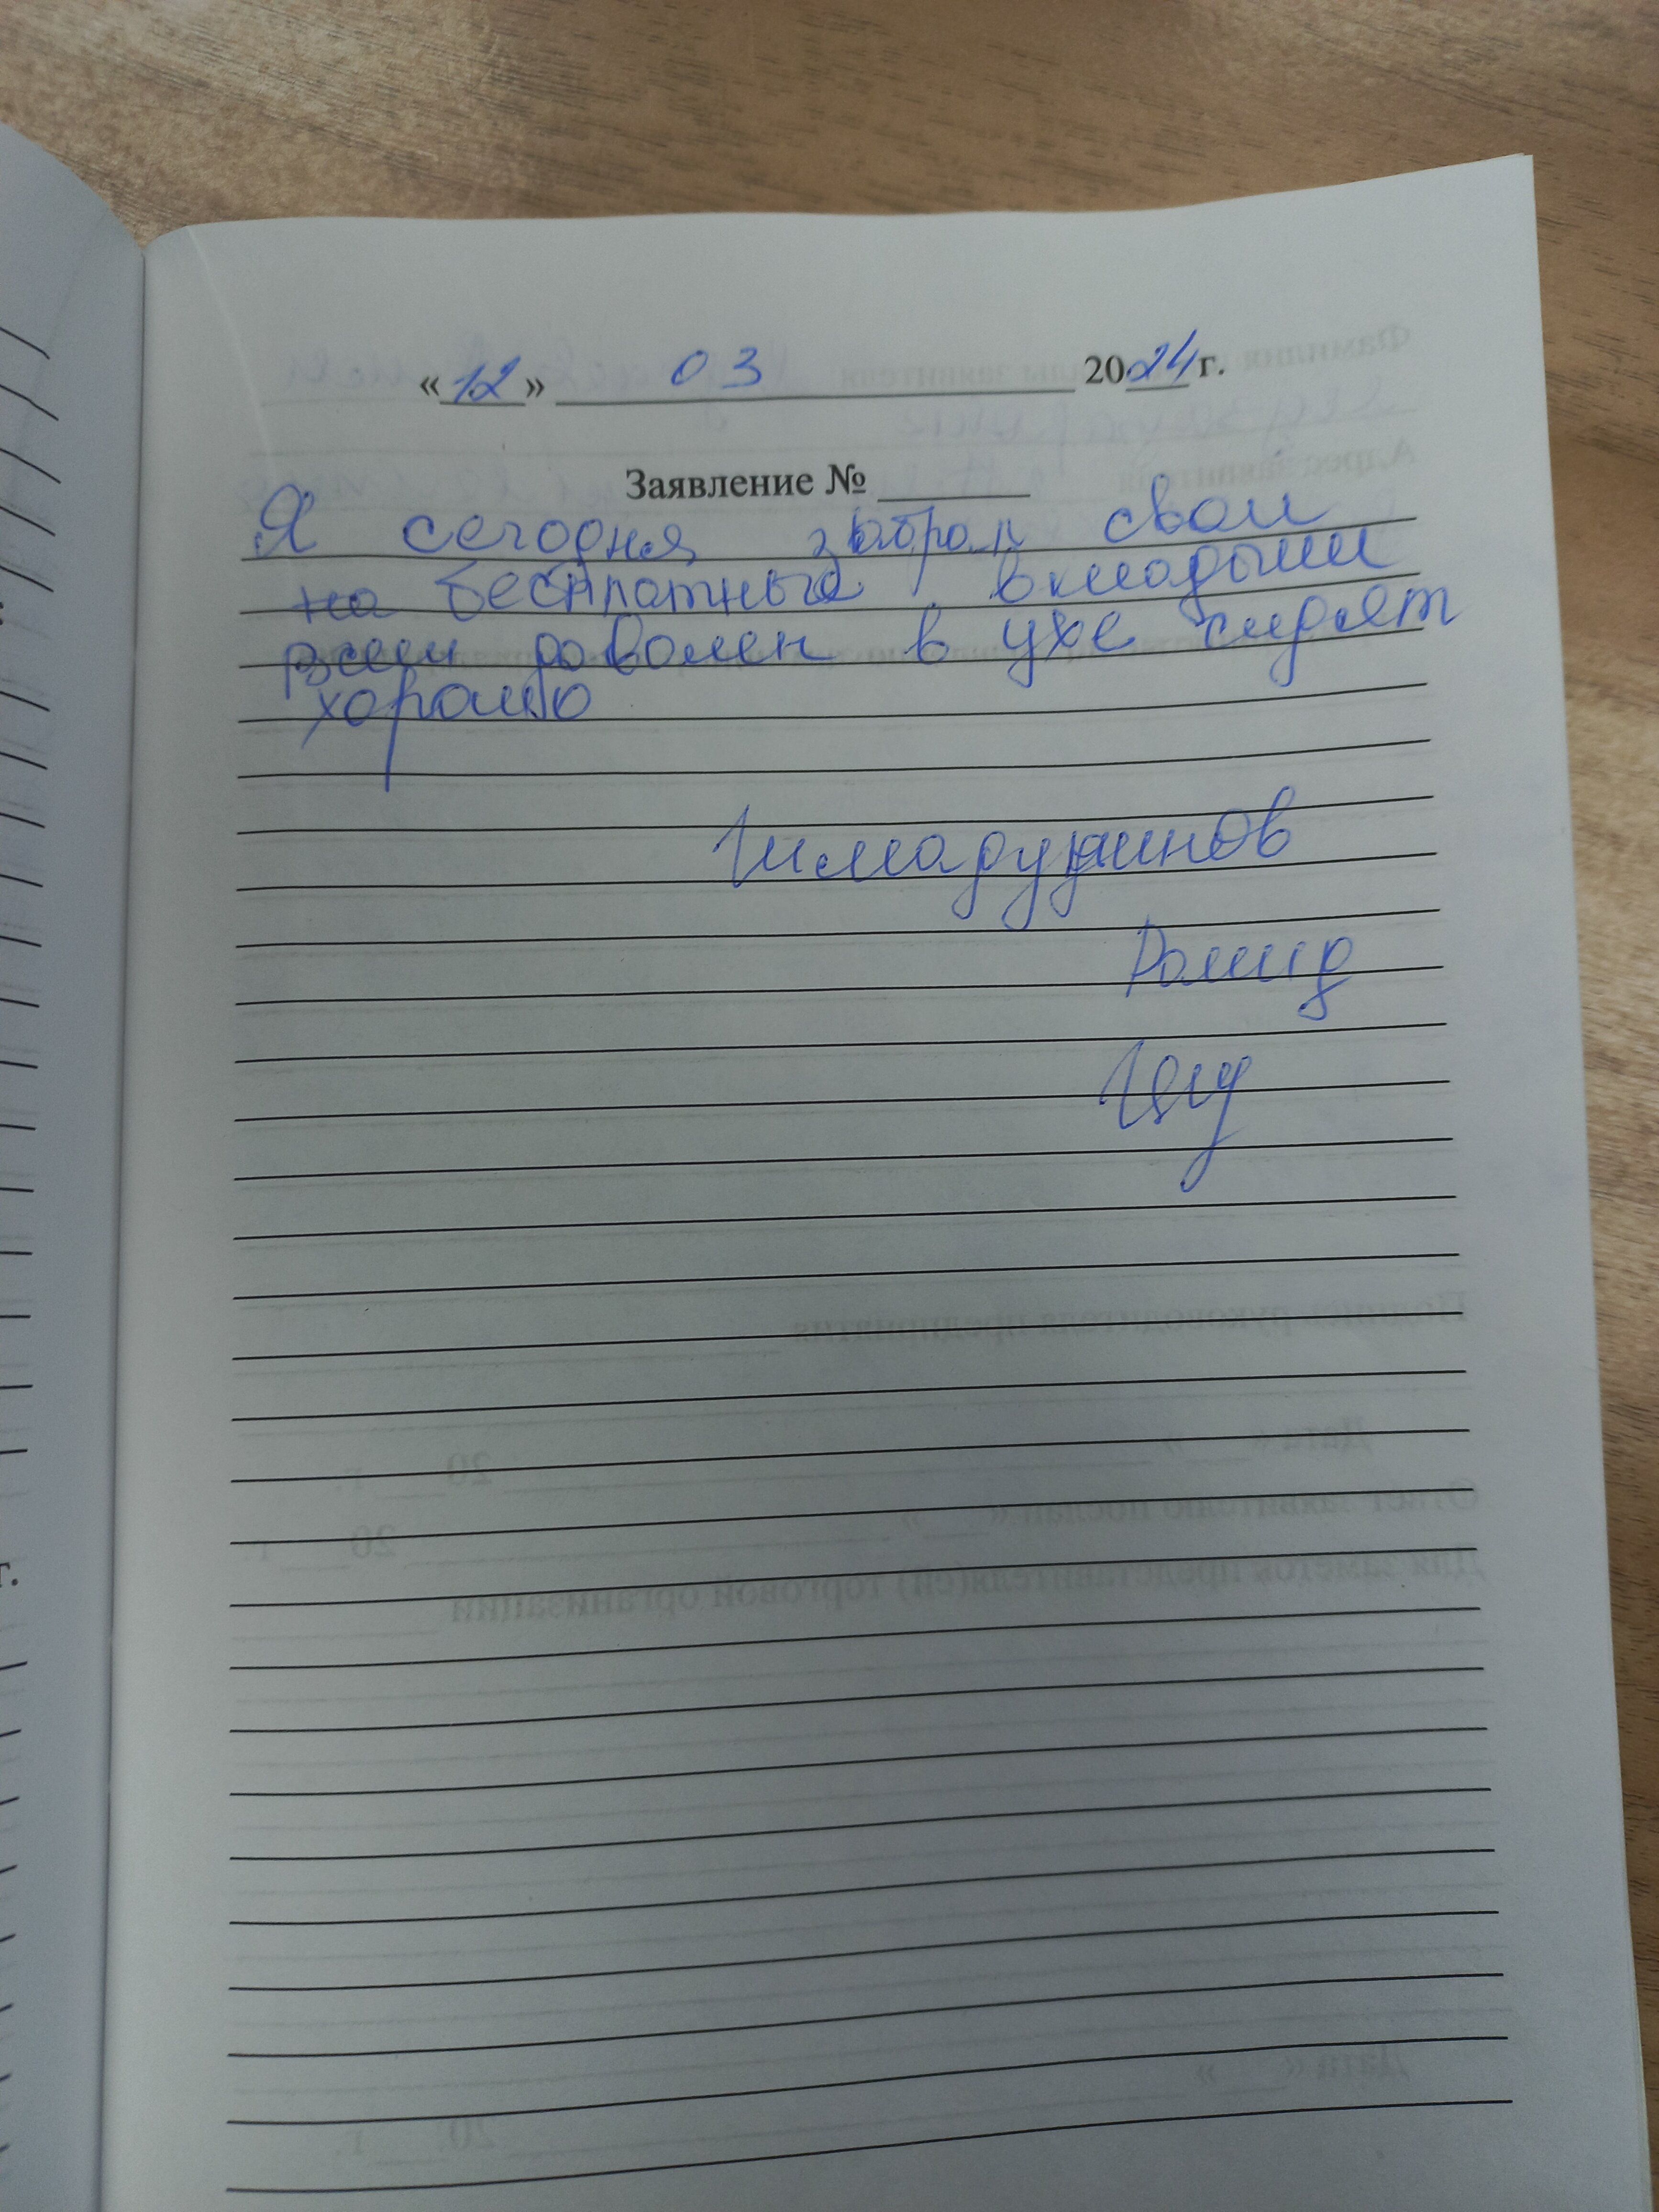 «12» 03 2024 г.
Заявление №
Я сегодня забрал свои
на бесплатные вкладыши
всем доволен в ухе сидят
хорошо
Гимадутдинов
Рашид